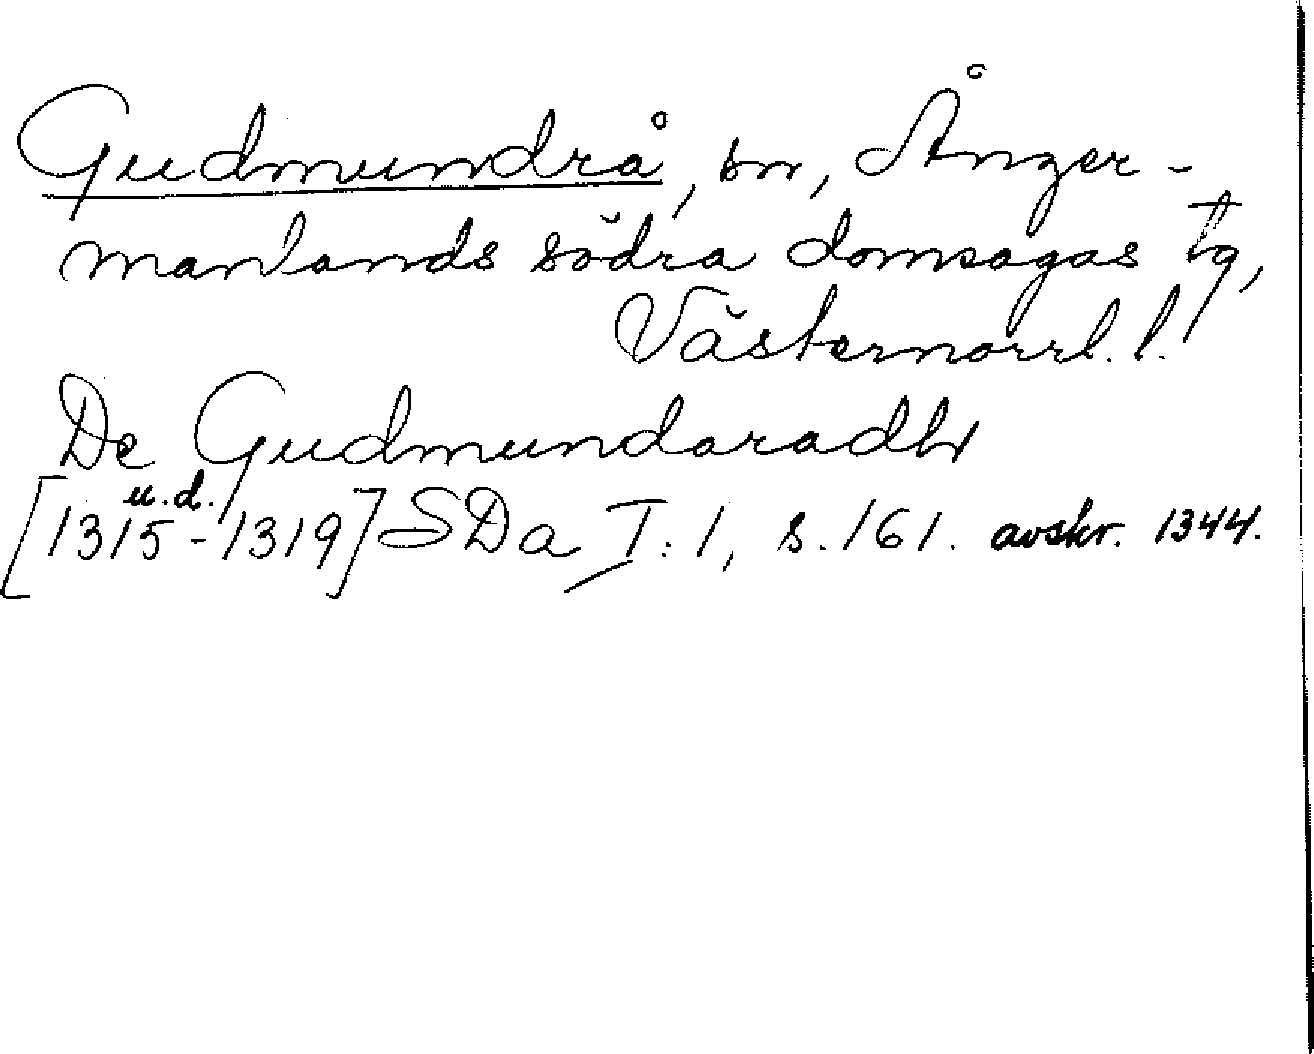 Gudmundrå, sn, Ånger-
manlands södra domsagas tg,
Västernorrl. l.
De Gudmundaradh
u.d.
[1315-1319] SDa I:1, s. 161. avskr. 1344.